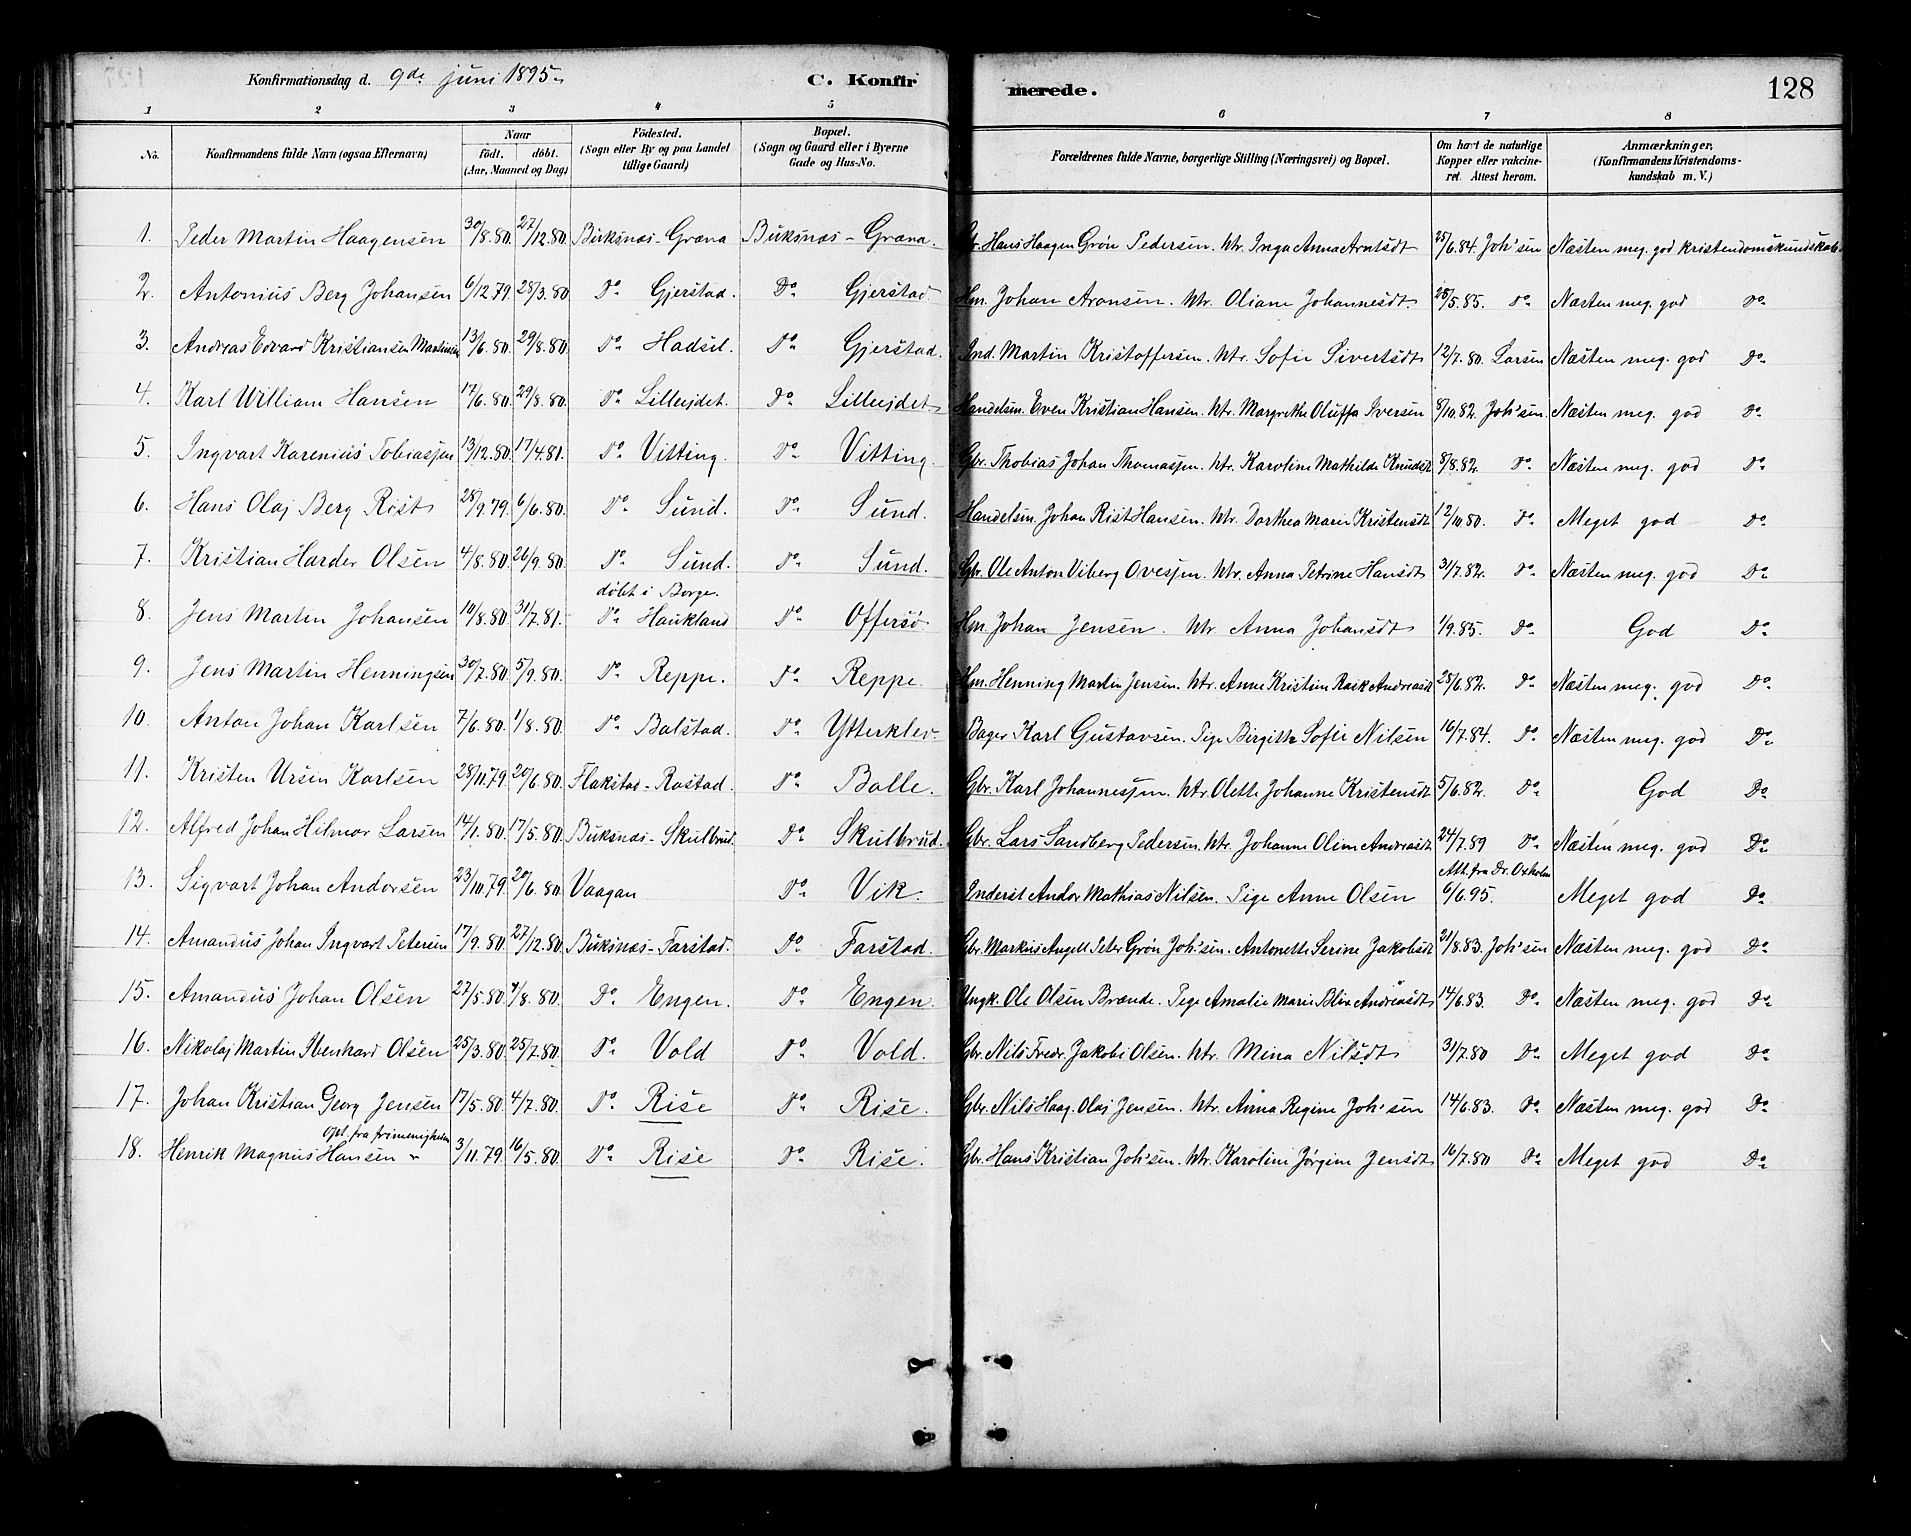 Konfirmationsdag d. 9de juni 1895. C. Konfirmerede. 128
1 2 3 4 5 6 7 8
No. Konfirmandens fulde Navn (ogsaa Efternavn) Naar födt. döbt. (Aar, Maaned og Dag) Födested. (Sogn eller By og paa Landet tillige Gaard) Bopæl. (Sogn og Gaard eller i Byerne Gade og Hus-No. Forældrenes fulde Navne, borgerlige Stilling (Næringsvei) og Bopæl. Om havt de naturlige Kopper eller vakcineret. Attest herom. Anmærkninger. (Konfirmandens Kristendomskundskab m. V.)
1. Peder Martin Haagensen 30/8.80. 27/12.80. Buksnæs - Græna Buksnæs - Græna. Hans Haagen Grön Pedersen. Htr. Inga Anna Arntsdt 25/6.84. Joh'sen Næsten meg. god kristendomskundskab.
2. Antonius Berg Johansen 6/12.79. 28/3.80. Do Gjerstad. Do Gjerstad. Hm. Johan Aronsen. Htr. Oliane Johannesdt 28/5.85. Do Næsten meg. god Do
3. Andreas Edvard Kristiansen Martinsen 13/6.80. 29/8.80. Do Hadsel. Do Gjerstad. Ind. Martin Kristoffersen. Htr. Sofie Sivertsdt 12/7.80. Larsen Næsten meg. god Do
4. Karl William Hansen 17/6.80. 29/8.80. Do Lilleejdet. Do Lilleejdet. Handelsm. Even Kristian Hansen. Htr. Margrethe Oluffa Iversen 8/10.82. Joh'sen. Næsten meg. god Do
5. Ingvart Karenius Tobiassen 13/12.80. 17/4.81. Do Vitting. Do Vitting. Gbr. Thobias Johan Thomassen. Htr. Karoline Mathilde Knudsdt 8/8.82. Do Næsten meg. god Do
6. Hans Olaj Berg Rist 28/9.79. 6/6.80. Do Sund. Do Sund. Handelsm. Johan Rist Hansen. Htr. Dorthea Marie Kristensdt 12/10.80. Do Meget god Do
7. Kristian Harder Olsen 4/8.80. 26/9.80. Do Sund. Do Sund. Gbr. Ole Anton Viberg Ovesen. Htr. Anna Petrine Hansdt 31/7.82. Do Næsten meg. god Do
döbt i Borge.
8. Jens Martin Johansen 10/8.80. 31/7.81. Do Haukland Do Offersö. Hm. Johan Jensen. Htr Anna Johansdt 1/9.85. Do God Do
9. Jens Martin Henningsen 30/7.80. 5/9.80. Do Reppe. Do Reppe. Hm. Henning Martin Jensen. Htr. Anne Kristine Rask Andreasdt 25/6.82. Do Næsten meg. god Do
10. Anton Johan Karlsen 7/6.80. 1/8.80. Do Balstad. Do Ytterklev. Bager Karl Gustavsen. Pige Birgitte Sofie Nilsen 16/7.84. Do Næsten meg. god Do
11. Kristen Ursin Karlsen 28/11.79. 20/6.80. Flakstad - Rastad. Do Balle. Gbr. Karl Johannessen. Htr. Olette Johanne Kristensdt 5/6.82. Do God Do
12. Alfred Johan Hilmar Larsen 14/1.80. 17/5.80. Buksnæs - Skulbrud. Do Skulbrud. Gbr. Lars Sandberg Pedersen. Htr. Johanne Oline Andreasdt 24/7.89 Do Næsten meg. god Do
13. Sigvart Johan Andorsen 23/10.79. 20/6.80. Vaagan Do Vik. Inderst Andor Mathias Nilsen. Pige Anne Olsen Att. fra Dr. Oxholm 6/6.95. Meget god Do
14. Amandus Johan Ingvart Petersen 17/9.80. 27/12.80. Buksnæs - Farstad. Do Farstad. Gbr. Markus Angell Peter Grön Joh'sen. Antonette Serine Jakobsdt 21/8.83. Joh'sen Næsten meg. god Do
15. Amandus Johan Olsen 27/5.80. /8.80. Do Engen. Do Engen. Ungk. Ole Olsen Brænde. Pige Amalie Marie Blix Andreasdt 14/6.83. Do Næsten meg. god Do
16. Nikolaj Martin Ibenhard Olsen 25/3.80. 25/7.80. Do Vold Do Vold. Gbr. Nils Fredr. Jakobi Olsen. Htr. Mina Nilsdt 31/7.80 Do Meget god Do
17. Johan Kristian Georg Jensen 17/5.80. 4/7.80. Do Rise Do Rise. Gbr. Nils Haag. Olaj Jensen. Htr. Anna Regine Joh'sen 14/6.83. Do Næsten meg. god Do
opt. fra frimenigheden
18. Henrik Magnus Hansen 3/11.79. 16/5.80. Do Rise Do Rise. Gbr. Hans Kristian Joh'sen. Htr. Karoline Jörgine Jensdt 16/7.80 Do Meget god Do